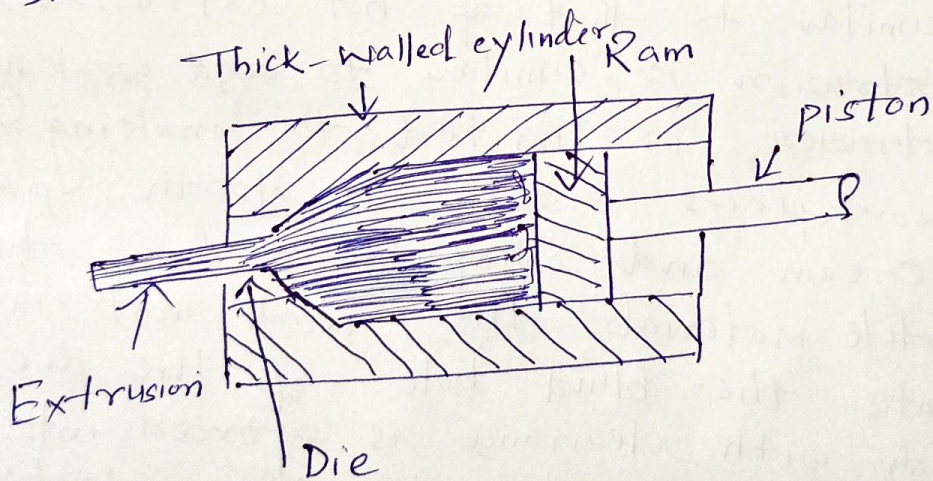 Thick-walled cylinder
Ram
piston
Extrusion
Die